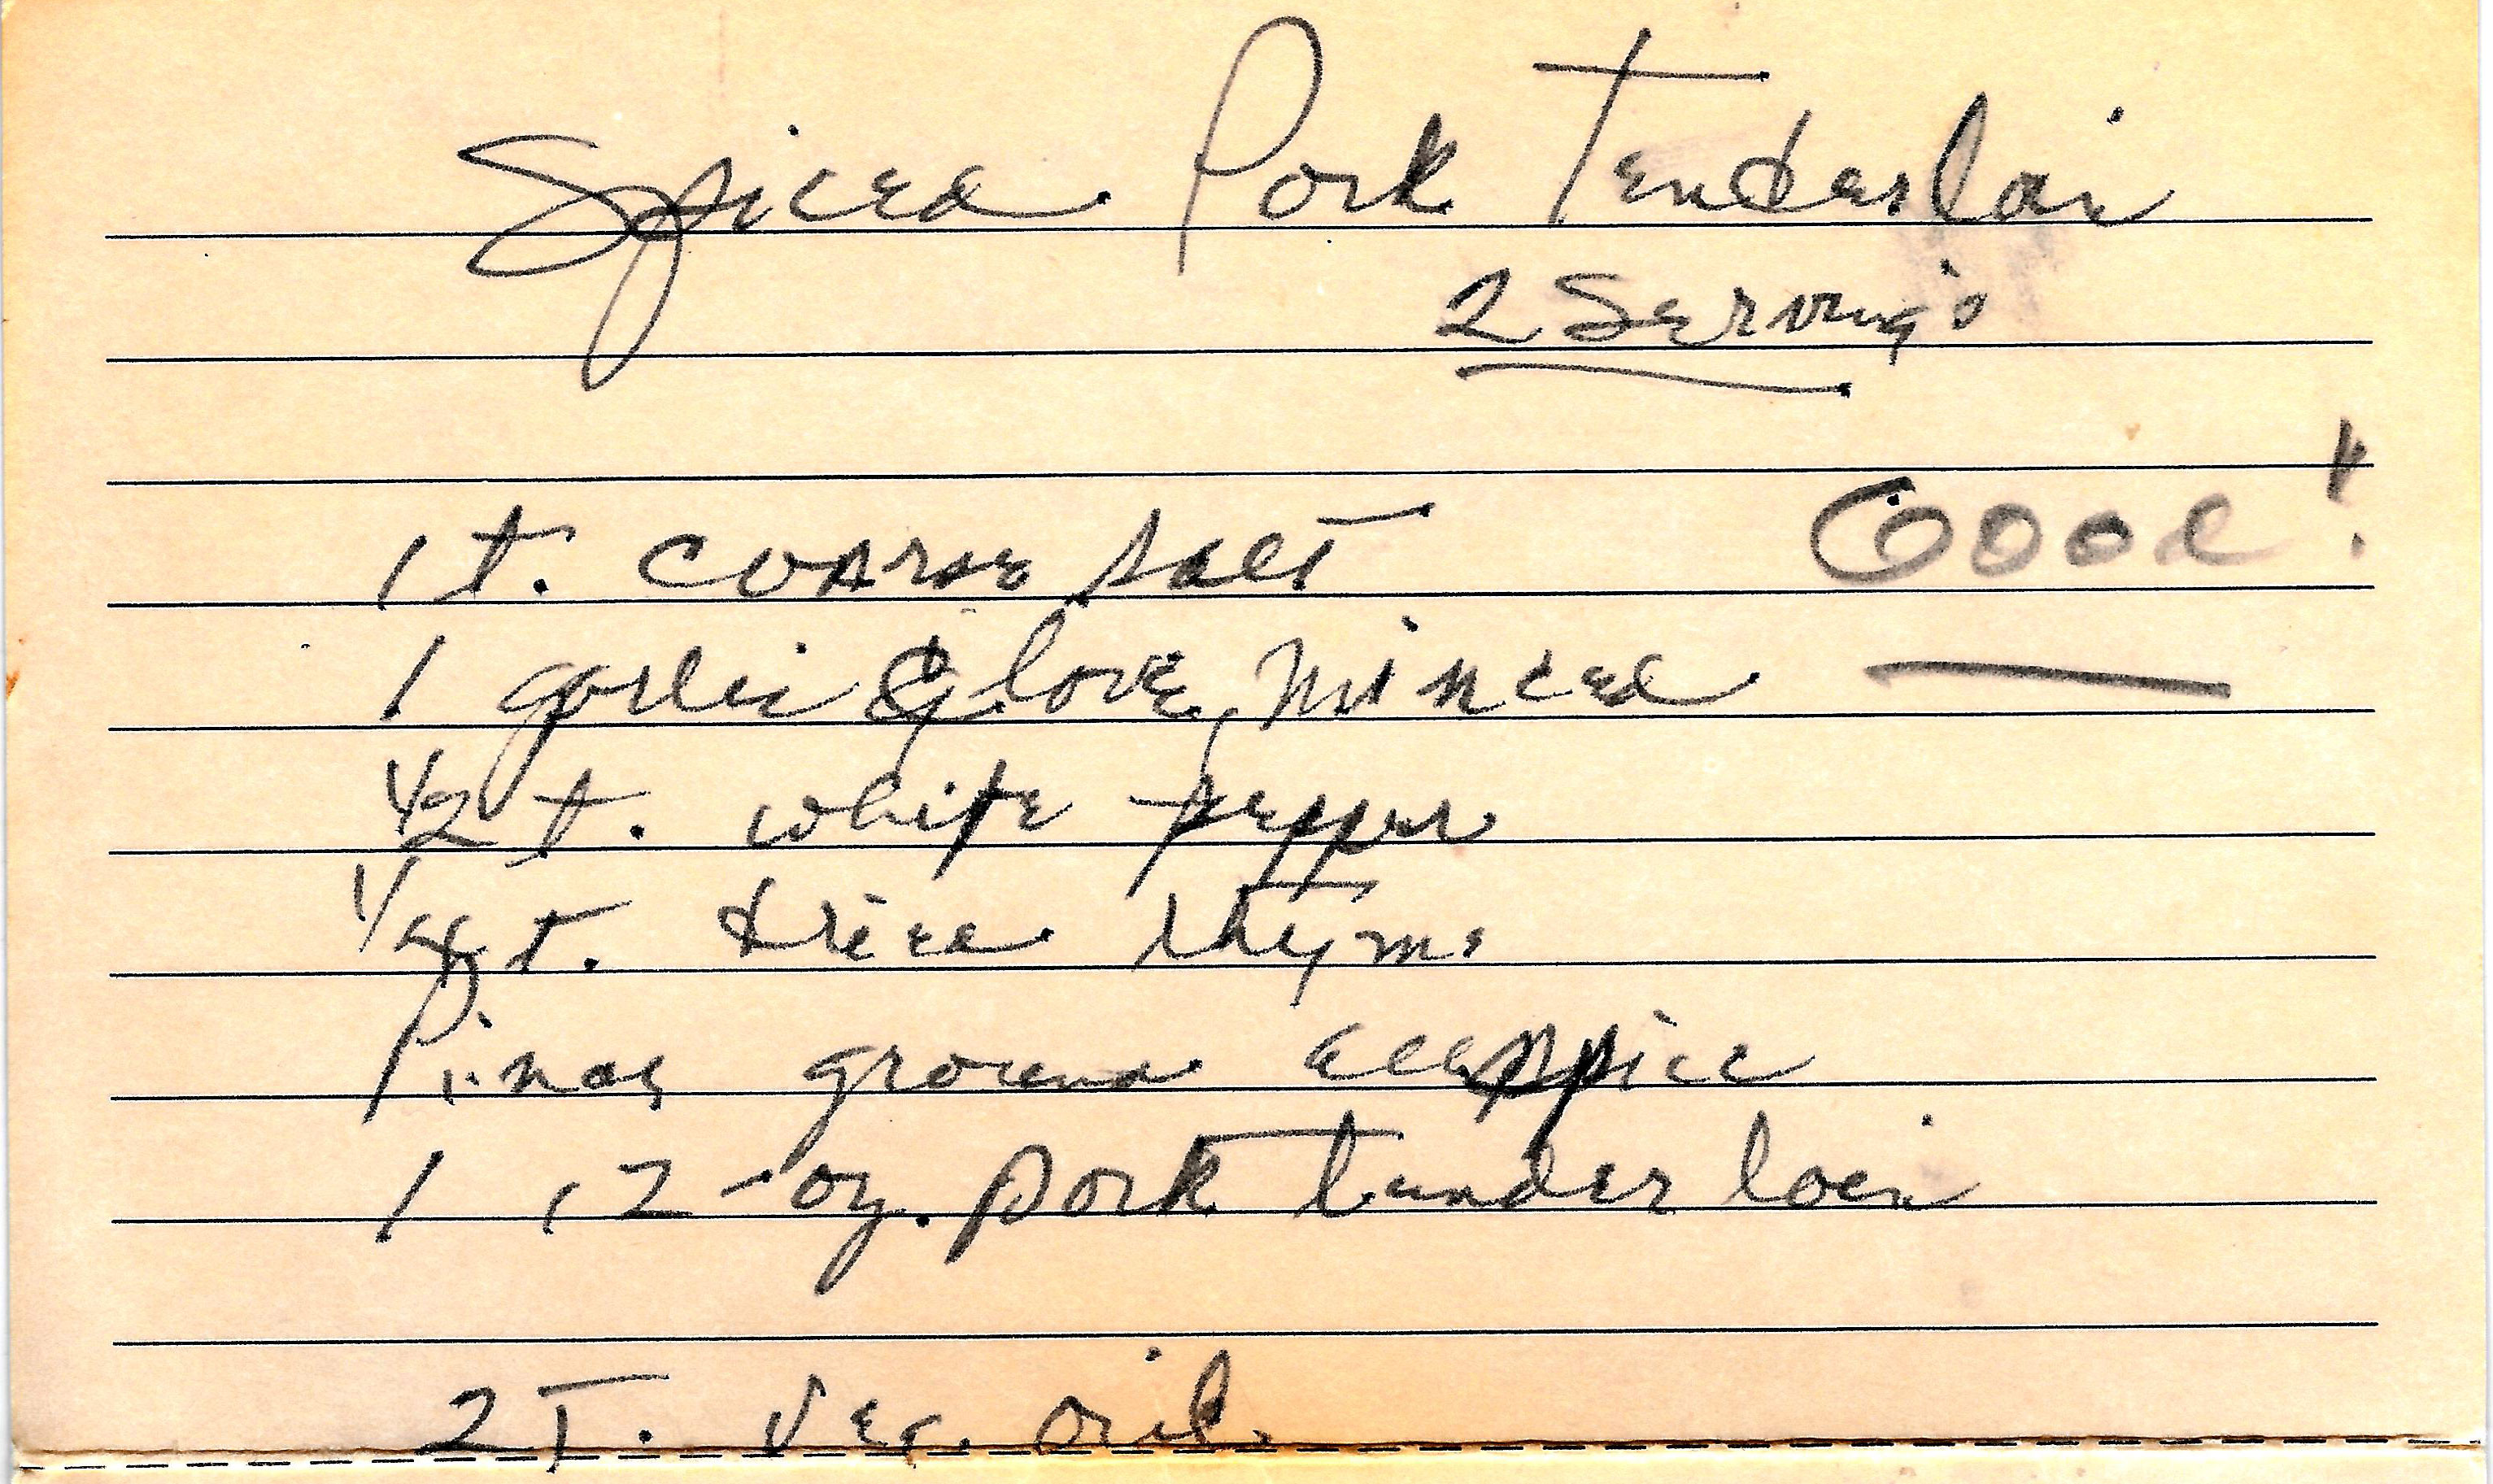 Spiced Pork Tenderloin
2 Servings
1 t. coarse salt
Cool!
1 garlic clove, minced
1/2 t. white pepper
1/4 t. dried thyme
Pinch ground allspice
1 12-oz. pork tenderloin
2 T. veg. oil